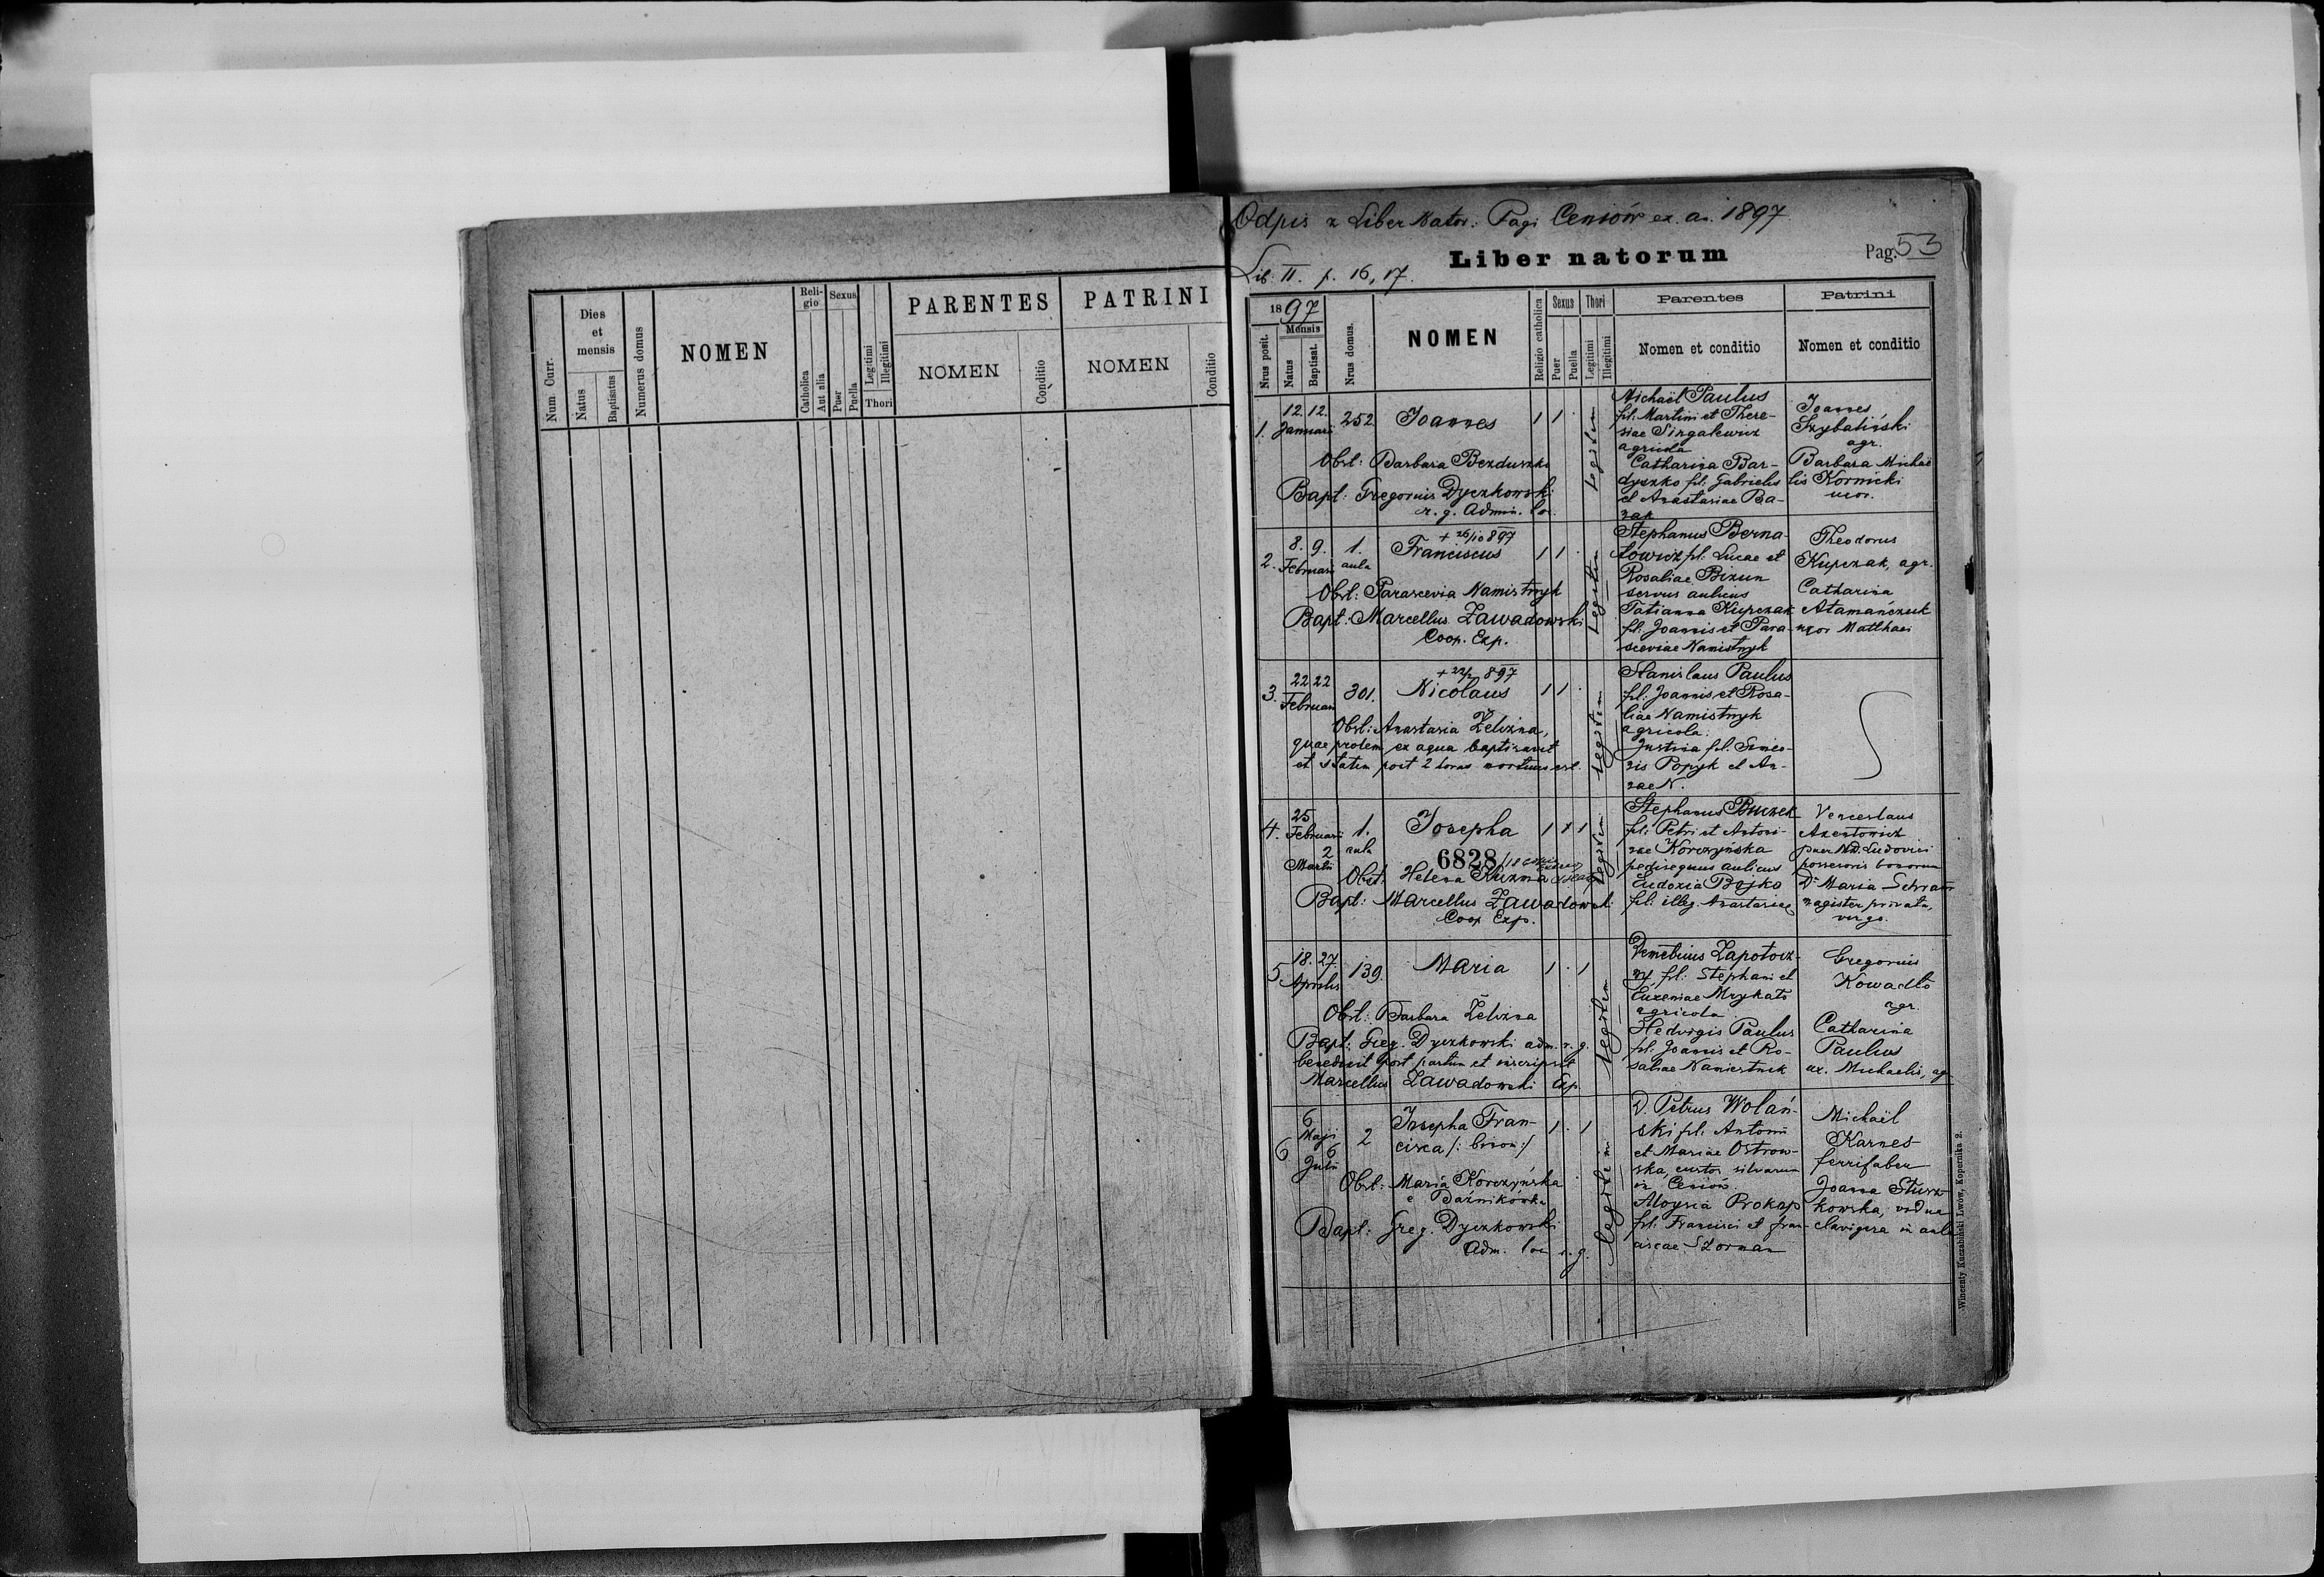 Num. Curr.
Dies
et
mensis
Natus
Baptisatus
Numerus domus
NOMEN
Reli-
gio
Catholica
Aut alia
Sexus
Puer
Puella
Legitimi
Illegitimi
Thori
PARENTES
NOMEN
Conditio
PATRINI
NOMEN
Conditio
Odpis z Liber Nator: Pagi Ceniów ex. an. 1897
Liber natorum
Pag. 53
Lib. II. p. 16, 17.
1897
Nrus posit.
Mensis
Natus
Baptisat.
Nrus domus.
NOMEN
Religio catholica
Sexus
Puer
Puella
Thori
Legitimi
Illegitimi
Parentes
Nomen et conditio
Patrini
Nomen et conditio
1.
12. 12.
Januarii
252
Joannes
1 1
Legitim
Obst: Barbara Bezduszko
Bapt: Gregorius Dyczkowski
r. g. Admin. loc.
Michaël Paulus
fil. Martini et There-
siae Singalewicz
agricola
Catharina Bar-
dyszko fil. Gabrielis
et Anastasiae Ba-
zak
Joannes
Szybaliński
agr.
Barbara Michaë
lis Kornicki
uxor.
2.
8. 9.
Februarii
1.
aula
+ 26/10 897
Franciscus
1 1
Legitim
Obst: Parascevia Namistnyk
Bapt: Marcellus Zawadowski
Coop. Exp.
Stephanus Berna-
towicz fil. Lucae et
Rosaliae Bizun
servus aulicus
Tatianna Kupczak
fil. Joannis et Para-
sceviae Namistnyk
Theodorus
Kupczak, agr.
Catharina
Atamańczuk
uxor Matthaei
3.
22 22
Februarii
301.
+ 22/2 897
Nicolaus
1 1
Legitim
Obst: Anastasia Zelizna,
quae prolem ex aqua baptisavit
et statim post 2 horas mortuus est.
Stanislaus Paulus
fil. Joannis et Rosa-
liae Namistnyk
agricola.
Justina fil. Simeo-
nis Popyk et An-
nae N.
4.
25
Februarii
2
Martii
1.
aula
Josepha
6828
Legitim
Obst: Helena Kuzma
Bapt: Marcellus Zawadowski
Coop Exp.
Stephanus Buczek
fil. Petri et Antoni-
nae Korczyńska
pedisequus aulicus
Eudoxia Bojko
fil. illeg. Anastasiae
Venceslaus
Axentowicz
puer Ludovici
possessoris bonorum
Dª Maria
magister privata,
virgo.
5
18. 27
Aprilis
139.
Maria
1 · 1
Legitim
Obst: Barbara Zelizna
Bapt: Greg. Dyczkowski adm. r. g.
benedixit post partum et inscripsit
Marcellus Zawadowski Exp.
Demetrius Zapotocz-
ny, fil: Stephani et
Eugeniae Mrykało
agricola
Hedvigis Paulus
fil. Joannis et Ro-
saliae Namiestnik
Gregorius
Kowadło
agr.
Catharina
Paulus
ux. Michaelis, agr.
6
6
Maji
6
Julii
2
Josepha Fran-
cisca /: binom :/
1 · 1
Legitim
Obst: Maria Korczyńska
Bapt: Greg. Dyczkowski
Adm. loci r. g.
D. Petrus Wolań-
ski fil. Antonii
et Mariae Ostrow-
ska, custos silvarum
in Ceniów.
Aloysia Prokop
fil. Francisci et Fran-
ciscae Szorman
Michaël
Karnes
ferrifaber
Joanna Sturz-
kowska, vidua
clavigera in aula
Wincenty Kuczabiński Lwów, Kopernika 2.